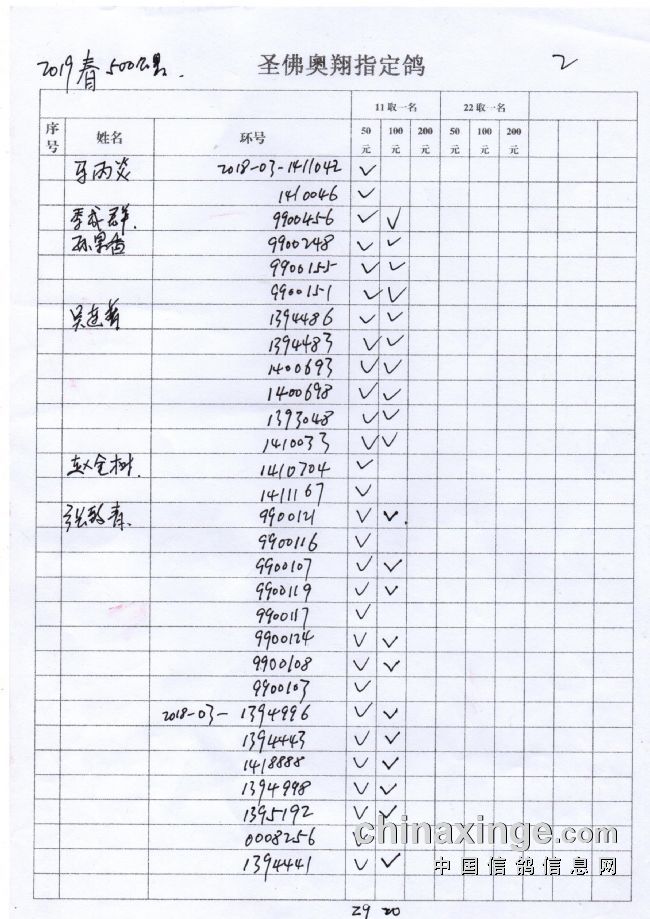 2019春500公里. 圣佛奥翔指定鸽 2
11取一名 22取一名
序号 姓名 环号 50元 100元 200元 50元 100元 200元
2018-03-1411042 ✓
1410046 ✓
9900456 ✓ ✓
9900248 ✓ ✓
9900155 ✓ ✓
9900151 ✓ ✓
1394486 ✓ ✓
1394483 ✓ ✓
1400693 ✓ ✓
1400698 ✓ ✓
1393048 ✓ ✓
1410033 ✓ ✓
赵全树. 1410704 ✓
1411167 ✓
9900121 ✓ ✓.
9900116 ✓
9900107 ✓ ✓
9900119 ✓ ✓
9900117 ✓
9900124 ✓ ✓
9900108 ✓ ✓
9900103 ✓
2018-03-1394996 ✓ ✓
1394443 ✓ ✓
1418888 ✓ ✓
1394998 ✓ ✓
1395192 ✓ ✓
0008256 ✓
1394441 ✓ ✓
29 20
chinaxinge.com
中国信鸽信息网